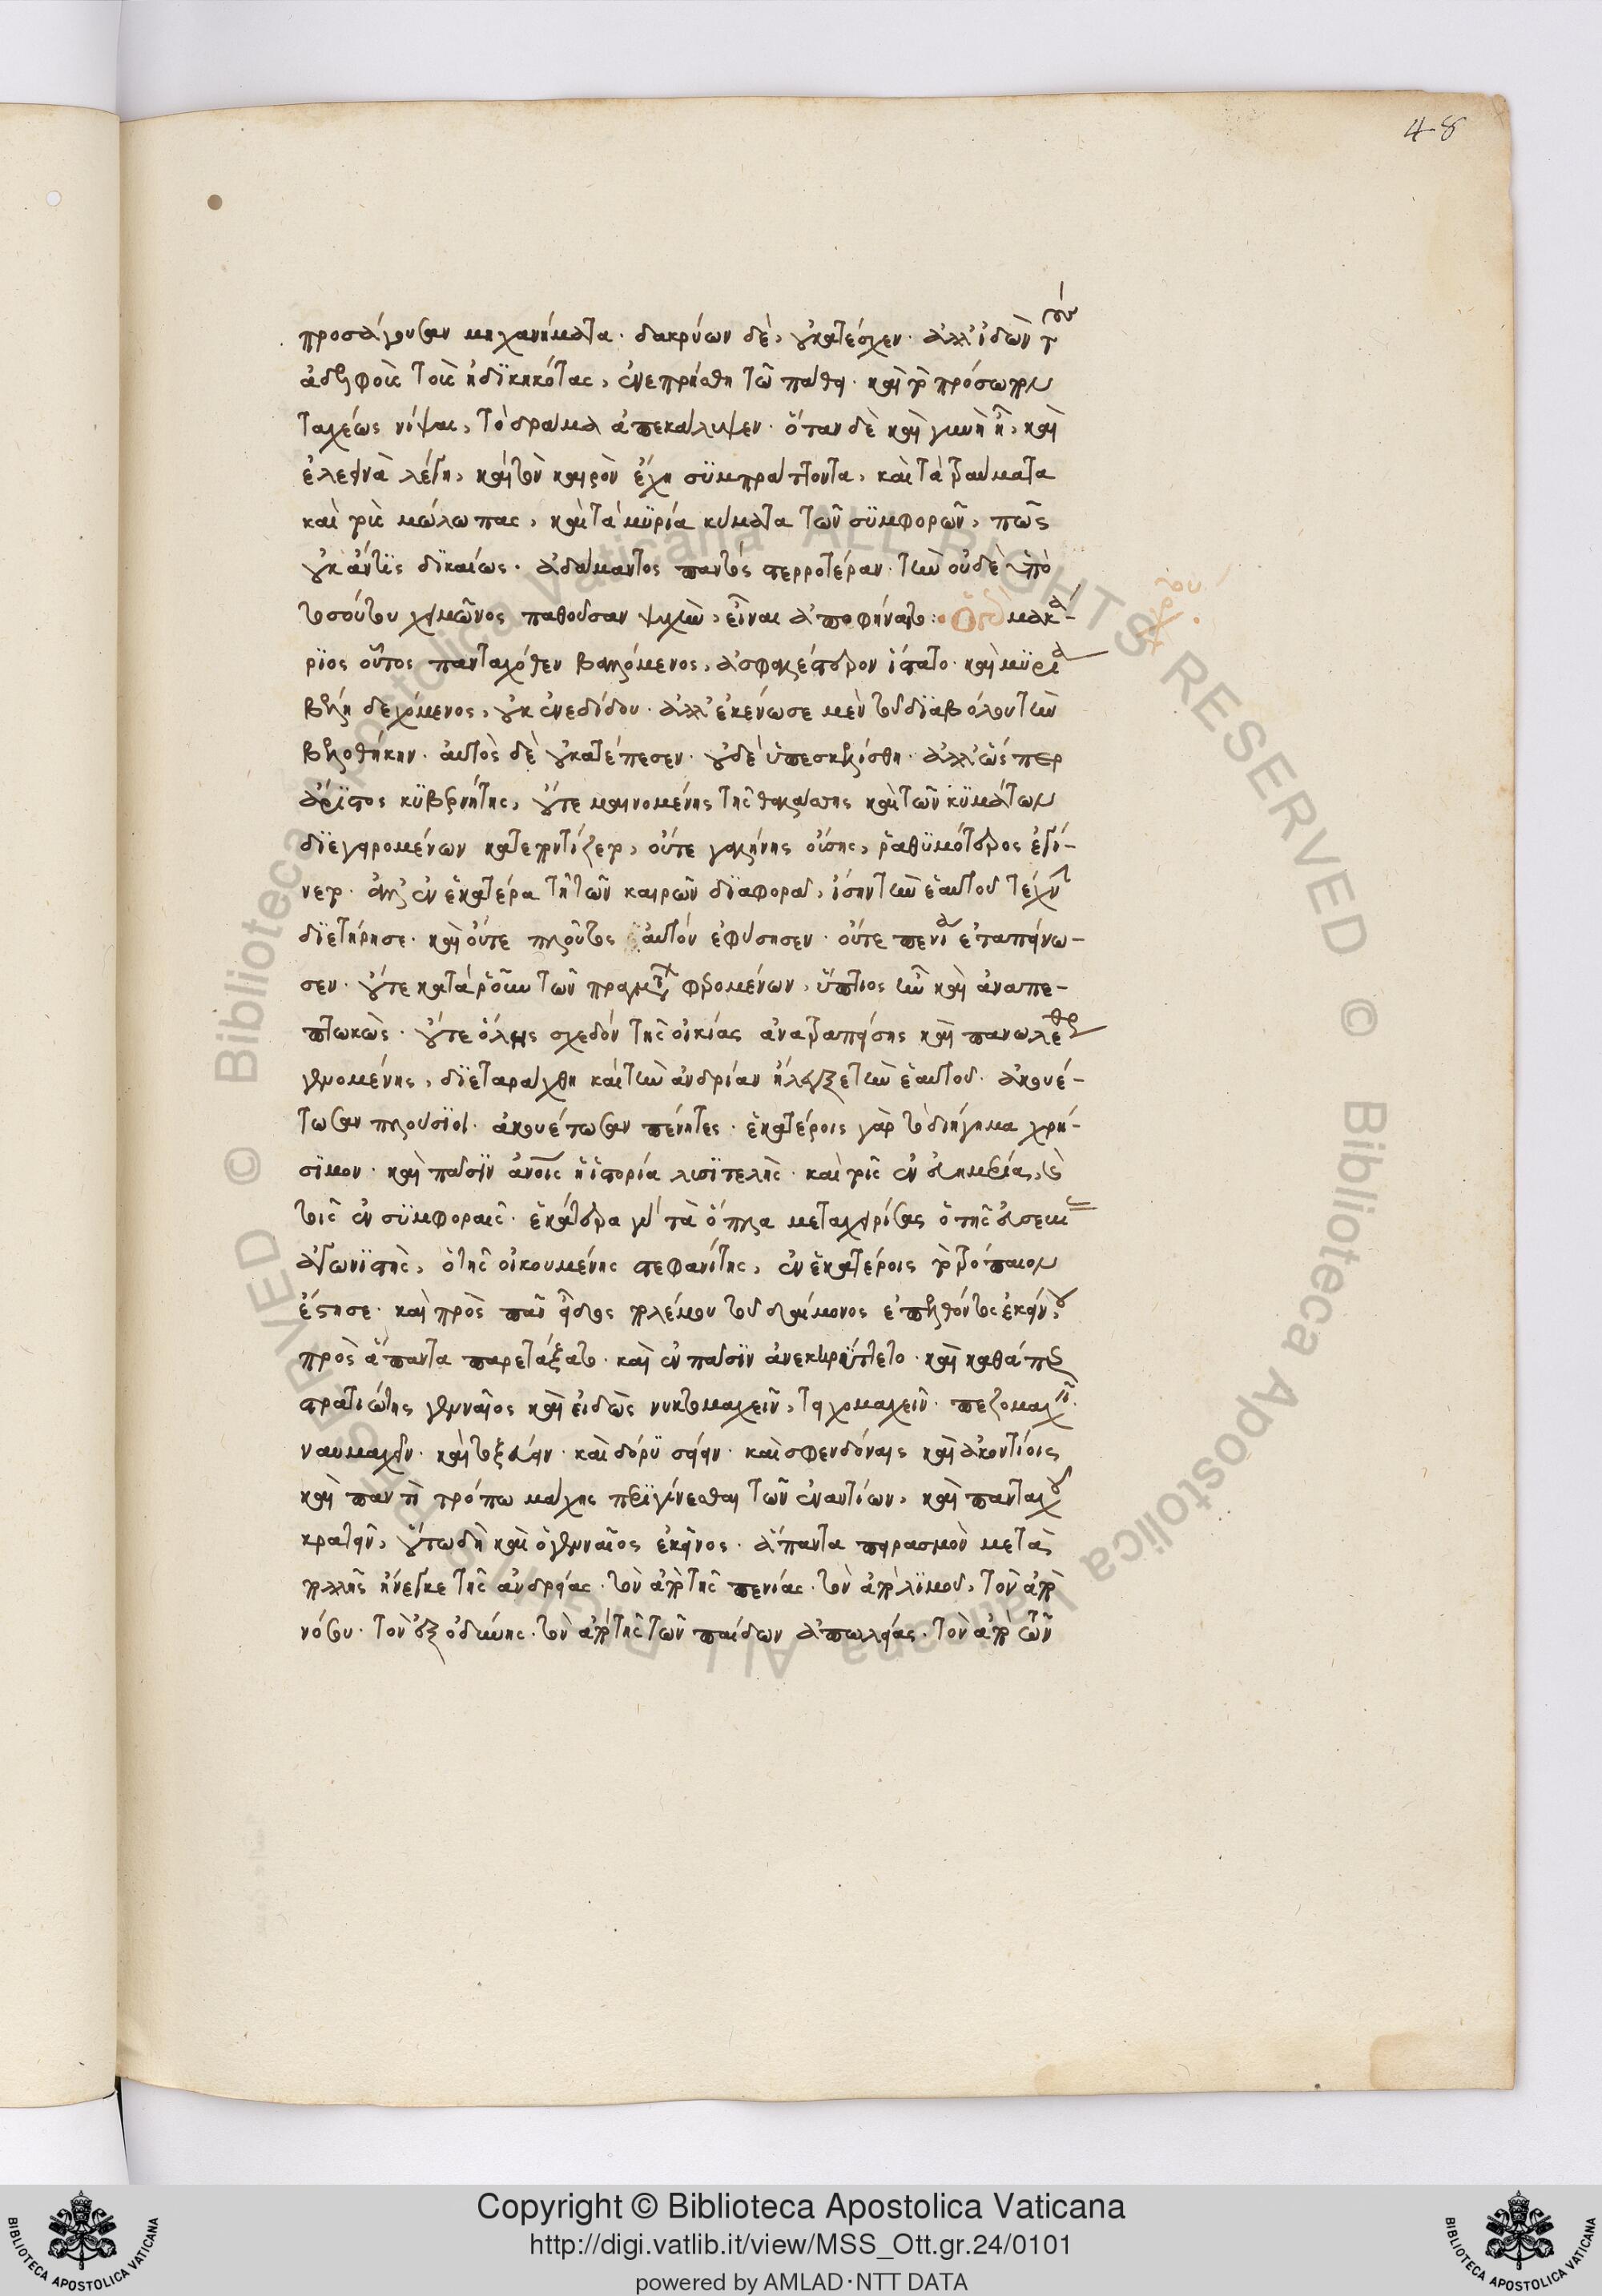 48
προσάγουσαν μηχανήματα· δακρύων δὲ, οὐ κατέσχεν· ἀλλ' ἰδὼν τοὺς
ἀδελφοὺς τοὺς ἠδϊκηκότας, ἐνεπρήσθη τῶ πάθει· καὶ τὸ πρόσωπον
ταχέως νίψας, τὸ δρᾶμα ἀπεκάλυψεν· ὅταν δὲ καὶ γυνὴ ἦ, καὶ
ἐλεεινὰ λέγη, καὶ τὸν καιρὸν ἔχη συμπράττοντα, καὶ τὰ τραύματα
καὶ τοὺς μώλωπας, καὶ τὰ μϋρία κύματα τῶν σϋμφορῶν, πῶς
οὐκ ἄν τις δϊκαίως· ἀδάμαντος παντὸς στερροτέραν· τὴν οὐδὲ ὑπὸ
τοσούτου χειμῶνος παθοῦσαν ψυχὴν, εἶναι ἀποφήναιτο: μακά-
ρϊος οὗτος πανταχόθεν βαλλόμενος, ἀσφαλέστερον ἵστατο· καὶ μϋρία
βέλη δεχόμενος, οὐκ ἐνεδίδου· ἀλλ' ἐκένωσε μὲν τοῦ διαβόλου τὴν
βελοθήκην· αὐτὸς δὲ οὐ κατέπεσεν· οὐδὲ ὑπεσκελίσθη· ἀλλ' ὥσπερ
ἄρϊστος κϋβερνήτης, οὔτε μαινομένης τῆς θαλάσσης καὶ τῶν κϋμάτων
διεγειρομένων κατεποντίζετο, οὔτε γαλήνης οὔσης, ῥαθϋμότερος ἐγί-
νετο· ἀλλ' ἐν ἑκατέρα τῆ τῶν καιρῶν διαφορᾶ, ἴσην τὴν ἑαυτοῦ τέχνην
διετήρησε· καὶ οὔτε πλοῦτος αὐτὸν ἐφύσησεν· οὔτε πενία ἐταπείνω-
σεν· οὔτε κατὰ ῥοῦν τῶν πραγμάτων φερομένων, ὕπτιος ἦν καὶ ἀναπε-
πτωκώς· οὔτε ὅλης σχεδὸν τῆς οἰκίας ἀνατραπείσης καὶ πανωλεθρίας
γενομένης, διεταράχθη καὶ τὴν ἀνδρίαν ἤλεγξε τὴν ἑαυτοῦ· ἀκουέ-
τωσαν πλούσϊοι· ἀκουέτωσαν πένητες· ἑκατέροις γὰρ τὸ διήγημα χρή-
σϊμον· καὶ πᾶσϊν ἀνοις ἡ ἱστορία λυσϊτελής· καὶ τοῖς ἐν εὐημερίαις, καὶ
τοῖς ἐν σϋμφοραῖς· ἑκάτερα γὰρ τὰ ὅπλα μεταχειρίσας ὁ τῆς εὐσεβείας
ἀγωνϊστὴς, ὁ τῆς οἰκουμένης στεφανίτης, ἐν ἑκατέροις τὸ τρόπαιον
ἔστησε· καὶ πρὸς πᾶν εἶδος πολέμου τοῦ δαίμονος ἐπελθόντος ἐκείνου,
πρὸς ἅπαντα παρετάξατο· καὶ ἐν πᾶσϊν ἀνεκηρύττετο· καὶ καθάπερ
στρατιώτης γενναῖος καὶ εἰδὼς νυκτομαχεῖν, τειχομαχεῖν· πεζομαχεῖν·
ναυμαχεῖν· καὶ τοξεύειν· καὶ δόρϋ σείειν· καὶ σφενδόναις καὶ ἀκοντίοις
καὶ παντὶ τρόπω μάχης περϊγίνεσθαι τῶν ἐναντίων, καὶ πανταχοῦ
κρατεῖν, οὕτω δὴ καὶ ὁ γενναῖος ἐκεῖνος· ἅπαντα πειρασμὸν μετὰ
πολλῆς ἤνεγκε τῆς ἀνδρείας· τὸν ἀπὸ τῆς πενίας· τὸν ἀπὸ λϊμοῦ, τὸν ἀπὸ
νόσου· τὸν ἐξ ὀδύνης· τὸν ἀπὸ τῆς τῶν παίδων ἀπωλείας· τὸν ἀπὸ τῶν
© Biblioteca Apostolica Vaticana ALL RIGHTS RESERVED
Copyright © Biblioteca Apostolica Vaticana
http://digi.vatlib.it/view/MSS_Ott.gr.24/0101
powered by AMLAD·NTT DATA
BIBLIOTECA APOSTOLICA VATICANA
BIBLIOTECA APOSTOLICA VATICANA